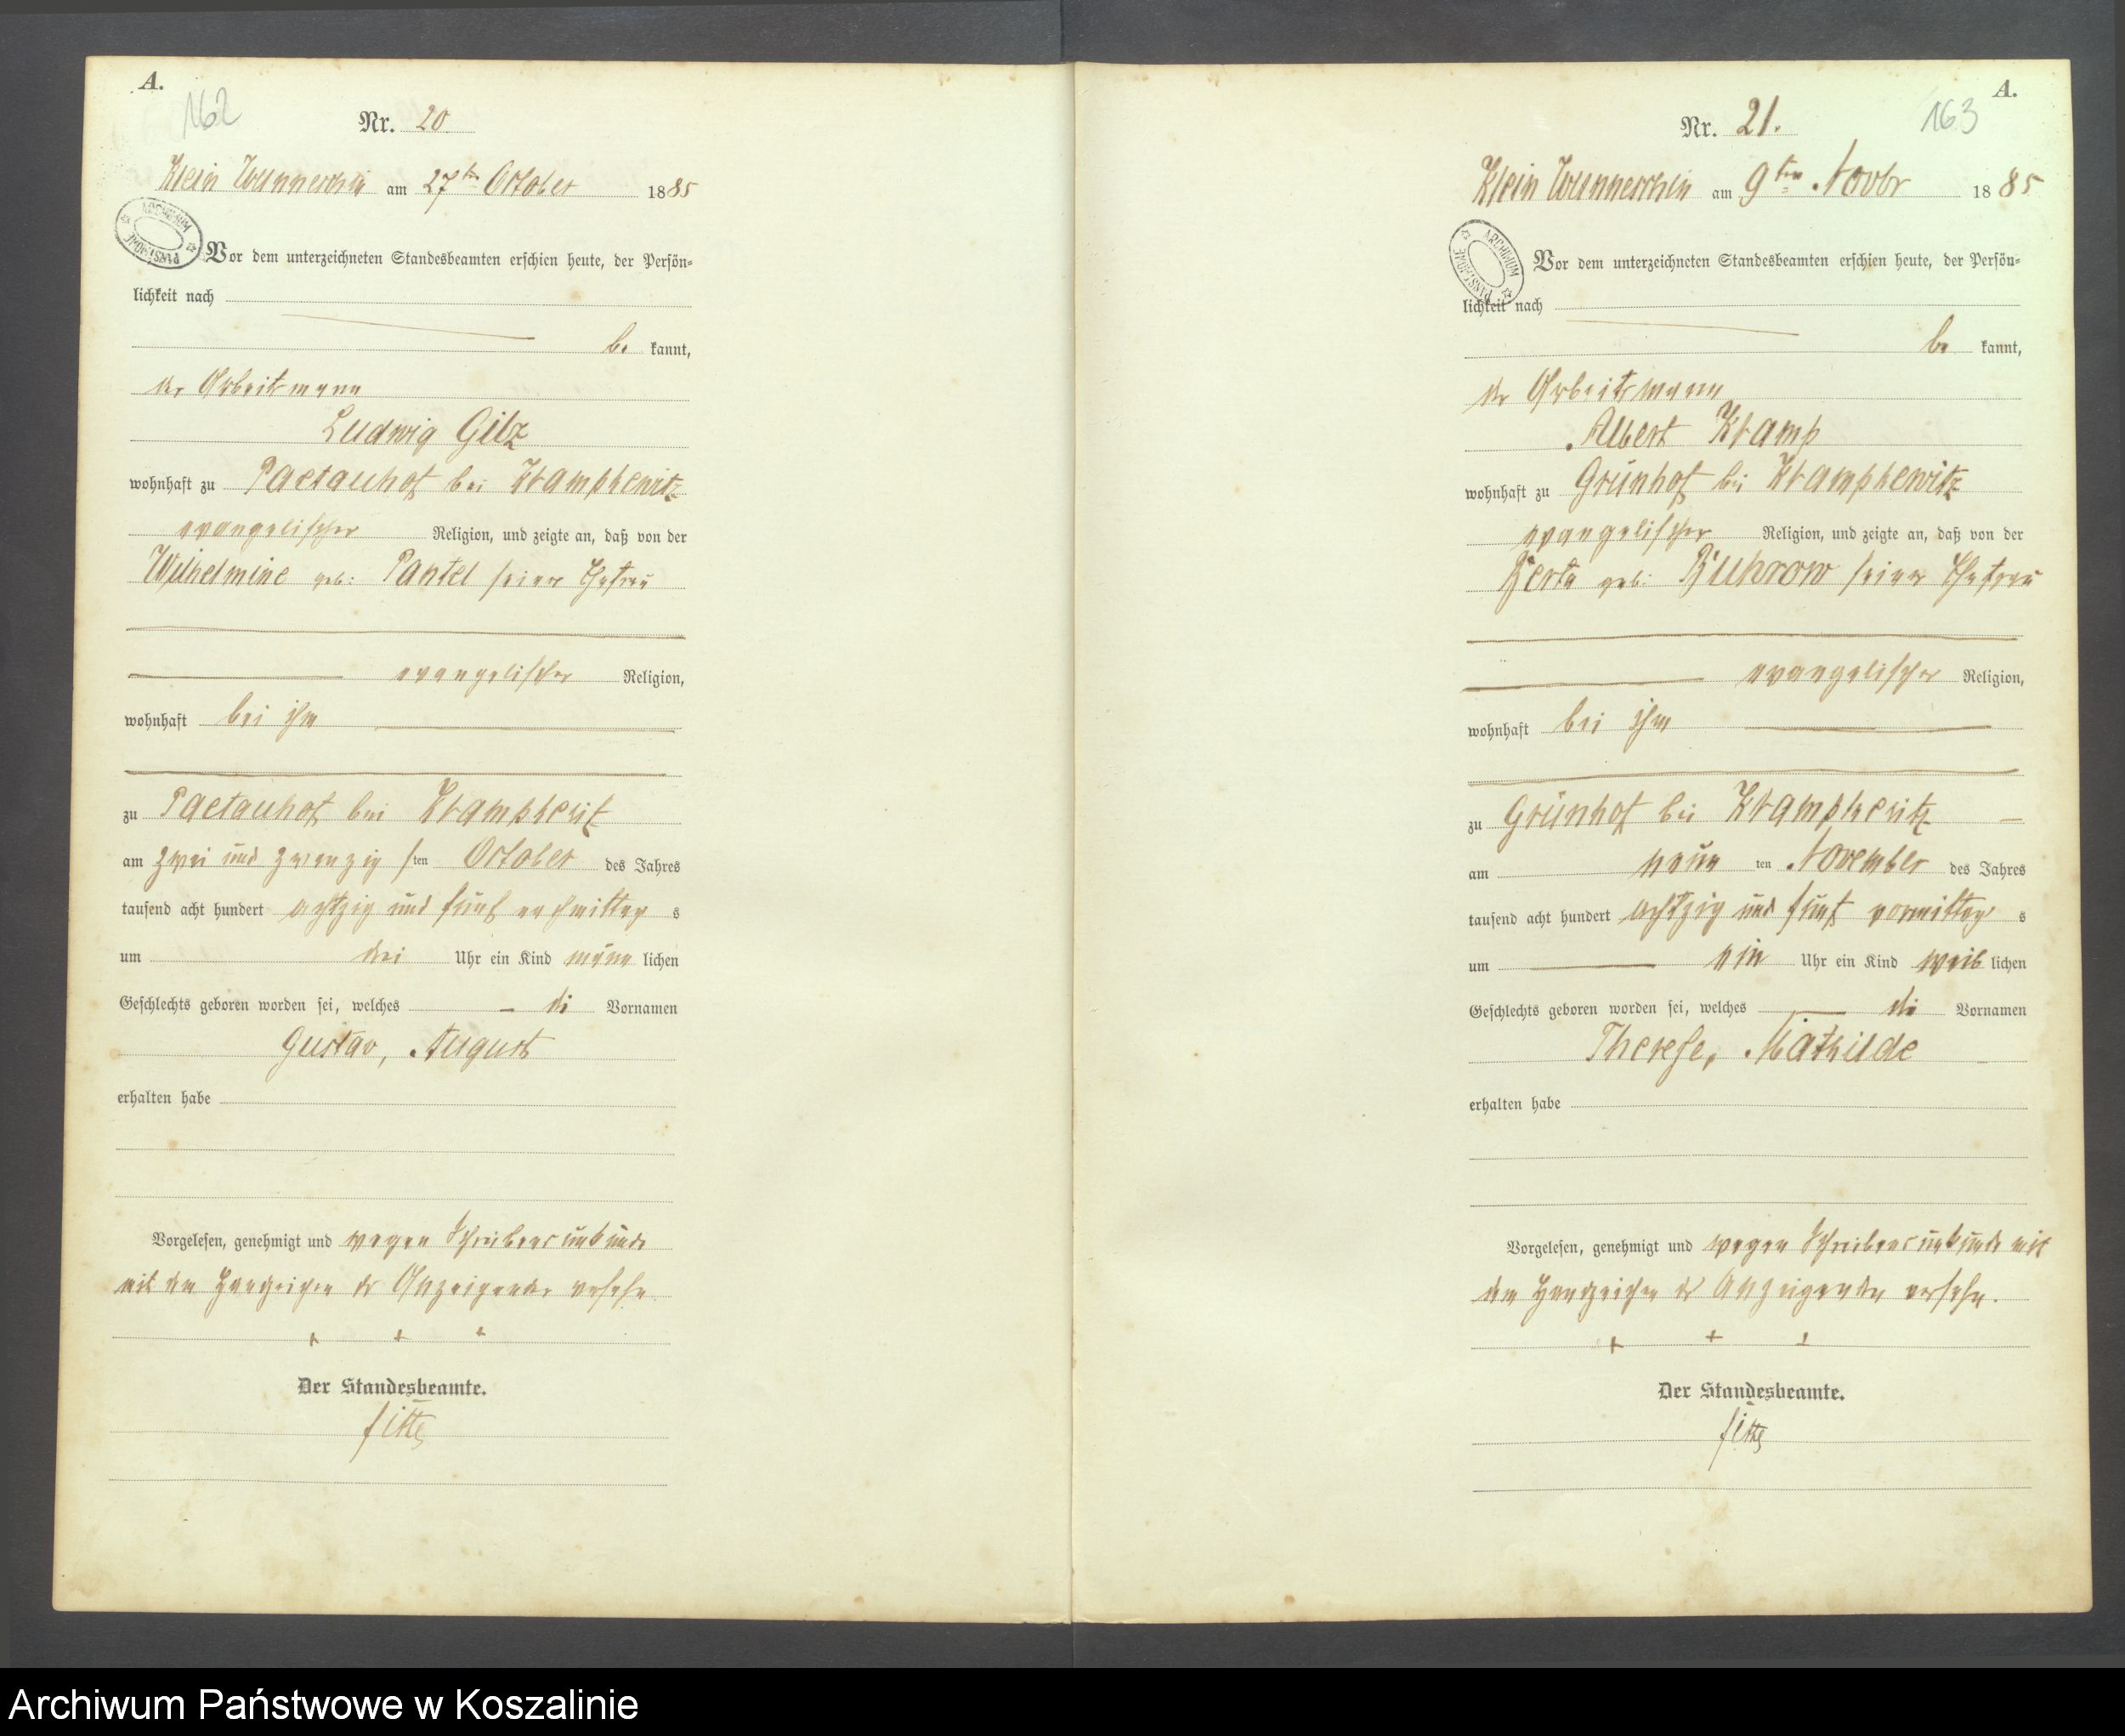 A.
162
Nr. 20
Klein Wunneschin am 27ten October 1885
ARCHIWUM PAŃSTWOWE
Vor dem unterzeichneten Standesbeamten erschien heute, der Persön-
lichkeit nach
be kannt,
der Arbeitsmann
Ludwig Gilz
wohnhaft zu Paetauhof bei Krampkewitz
evangelischer Religion, und zeigte an, daß von der
Wilhelmine geb: Pantel seiner Ehefrau
evangelischer Religion,
wohnhaft bei ihm
zu Paetauhof bei
am zwei und zwanzig sten October des Jahres
tausend acht hundert achtzig und fünf nachmittag s
um drei Uhr ein Kind männ lichen
Geschlechts geboren worden sei, welches die Vornamen
Gustav, August
erhalten habe
Vorgelesen, genehmigt und wegen Schreibensunkunde
mit dem Handzeichen des Anzeigenden versehn
+ + +
Der Standesbeamte.
A.
163
Nr. 21.
Klein Wunneschin am 9ten Novbr 1885
ARCHIWUM PAŃSTWOWE
Vor dem unterzeichneten Standesbeamten erschien heute, der Persön-
lichkeit nach
be kannt,
der Arbeitsmann
Albert Kramp
wohnhaft zu Grünhof bei Krampkewitz
evangelischer Religion, und zeigte an, daß von der
Berta geb: Buhrow seiner Ehefrau
evangelischer Religion,
wohnhaft bei ihm
zu Grünhof bei
am neun ten November des Jahres
tausend acht hundert achtzig und fünf vormittag s
um ein Uhr ein Kind weib lichen
Geschlechts geboren worden sei, welches die Vornamen
Therese, Mathilde
erhalten habe
Vorgelesen, genehmigt und wegen Schreibensunkunde mit
dem Handzeichen des Anzeigenden versehn.
+ + +
Der Standesbeamte.
Archiwum Państwowe w Koszalinie